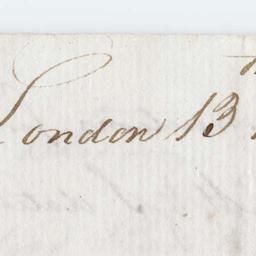 London 13th